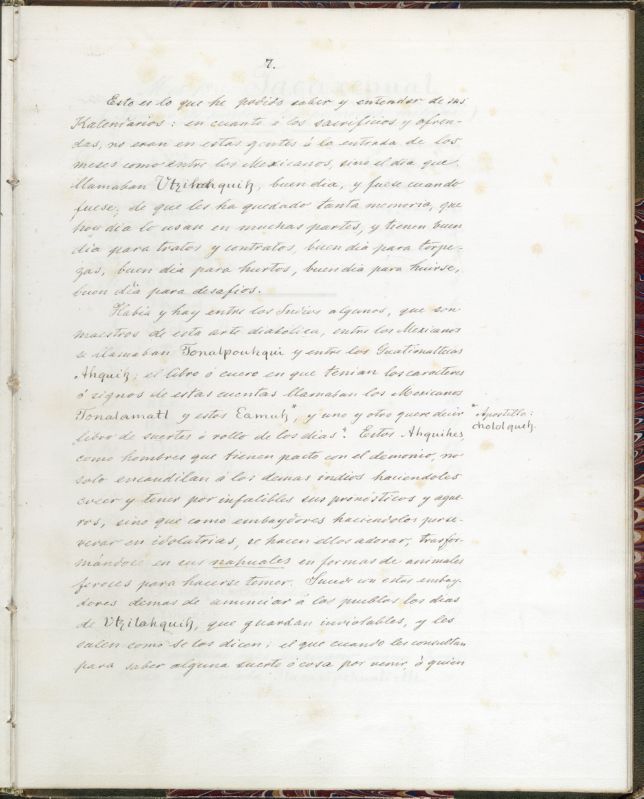 7.
Esto es lo que he podido saber y entender de sus
Kalendarios: en cuanto á los sacrificios y ofren-
das, no eran en estas gentes á la entrada de los
meses como entre los Mexicanos, sino el dia que
llamaban Utzilahquih, buen dia, y fuese cuando
fuese, de que les ha quedado tanta memoria, que
hoy dia lo usan en muchas partes, y tienen buen
dia para tratos y contratos, buen dia para torpe-
zas, buen dia para hurtos, buen dia para huirse,
buen dia para desafios.
Habia y hay entre los Indios algunos, que son
maestros de esta arte diabólica, entre los Mexicanos
se llamaban Tonalpouhqui y entre los Guatimaltecas
Ahquih; el libro ó cuero en que tenian los caracteres
ó signos de estas cuentas llamaban los Mexicanos
Tonalamatl y estos Eamuh*, y uno y otro quere decir
libro de suertes ó rollo de los dias*. Estos Ahquihes
como hombres que tienen pacto con el demonio, no
solo encandilan á los demas indios haciendoles
creer y tener por infalibles sus pronósticos y ague-
ros, sino que como embaydores haciendolos perse-
verar en idolatrias, se hacen ellos adorar, trasfor-
mándose en sus nahuales en formas de animales
feroces para hacerse temer. Sucede con estos embay-
dores demas de anunciar á los pueblos los dias
de Utzilahquih, que guardan inviolables, y les
salen como se los dicen; el que cuando les consultan
para saber alguna suerte ó cosa por venir ó quien
* Apostilla:
cholol queh.